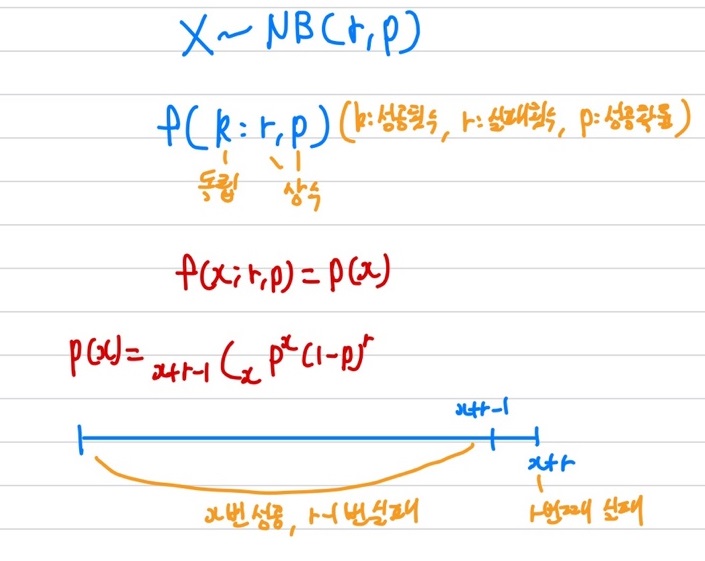 X ~ NB(r, p)
f(k : r, p) (k: 성공횟수, r: 실패횟수, p: 성공확률)
독립 상수
f(x; r, p) = p(x)
p(x) = x+r-1Cx p^x (1-p)^r
x+r-1
x+r
x번 성공, r-1번 실패 r번째 실패